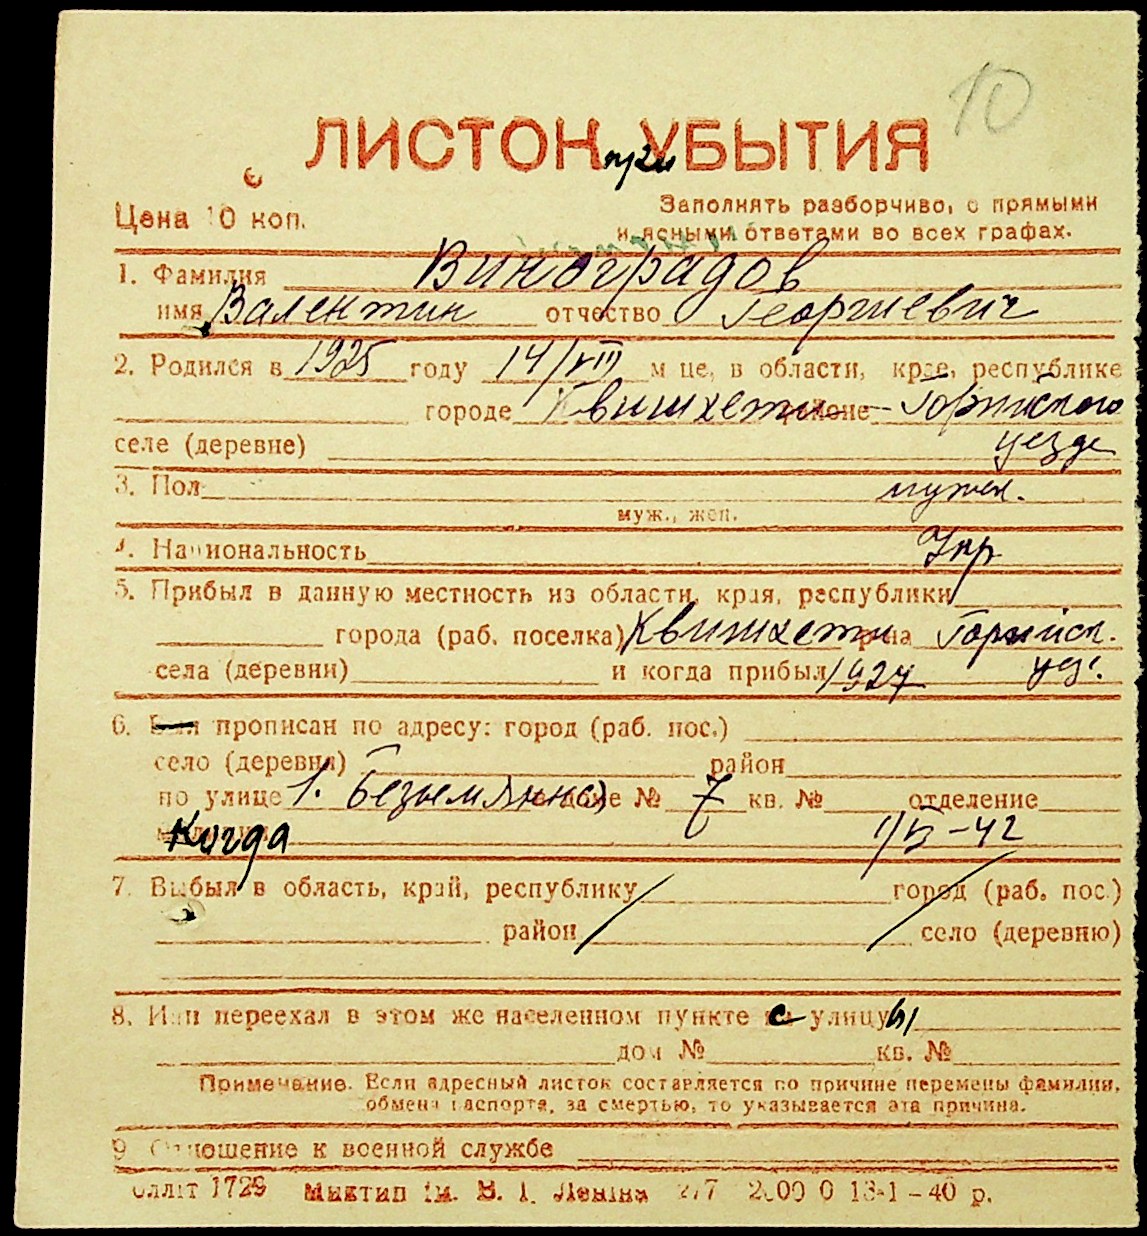 10
ЛИСТОК УБЫТИЯ
при
Цена 10 коп.
Заполнять разборчиво, с прямыми
и ясными ответами во всех графах.
1. Фамилия Виноградов
имя Валентин отчество Георгиевич
2. Родился в 1925 году 14/VIII м це, в области, крае, республике
городе Квишхети районе - Горийского
селе (деревне) уезде
3. Пол мужск.
муж., жен.
4. Национальность Укр
5. Прибыл в данную местность из области, края, республики
города (раб. поселка) Квишхети р-на Горийск.
села (деревни) и когда прибыл 1927 уез.
6. прописан по адресу: город (раб. пос.)
село (деревня) район
по улице 1. Безымянной доме № 7 кв. № отделение
Когда 1/VI-42
7. Выбыл в область, край, республику город (раб. пос.)
район село (деревню)
8. Или переехал в этом же населенном пункте с улицы
дом № кв. №
Примечание. Если адресный листок составляется по причине перемены фамилии,
обмена паспорта, за смертью, то указывается эта причина.
9 Отношение к военной службе
1729 ім. В. І. Леніна 2/7 13-1-40 р.